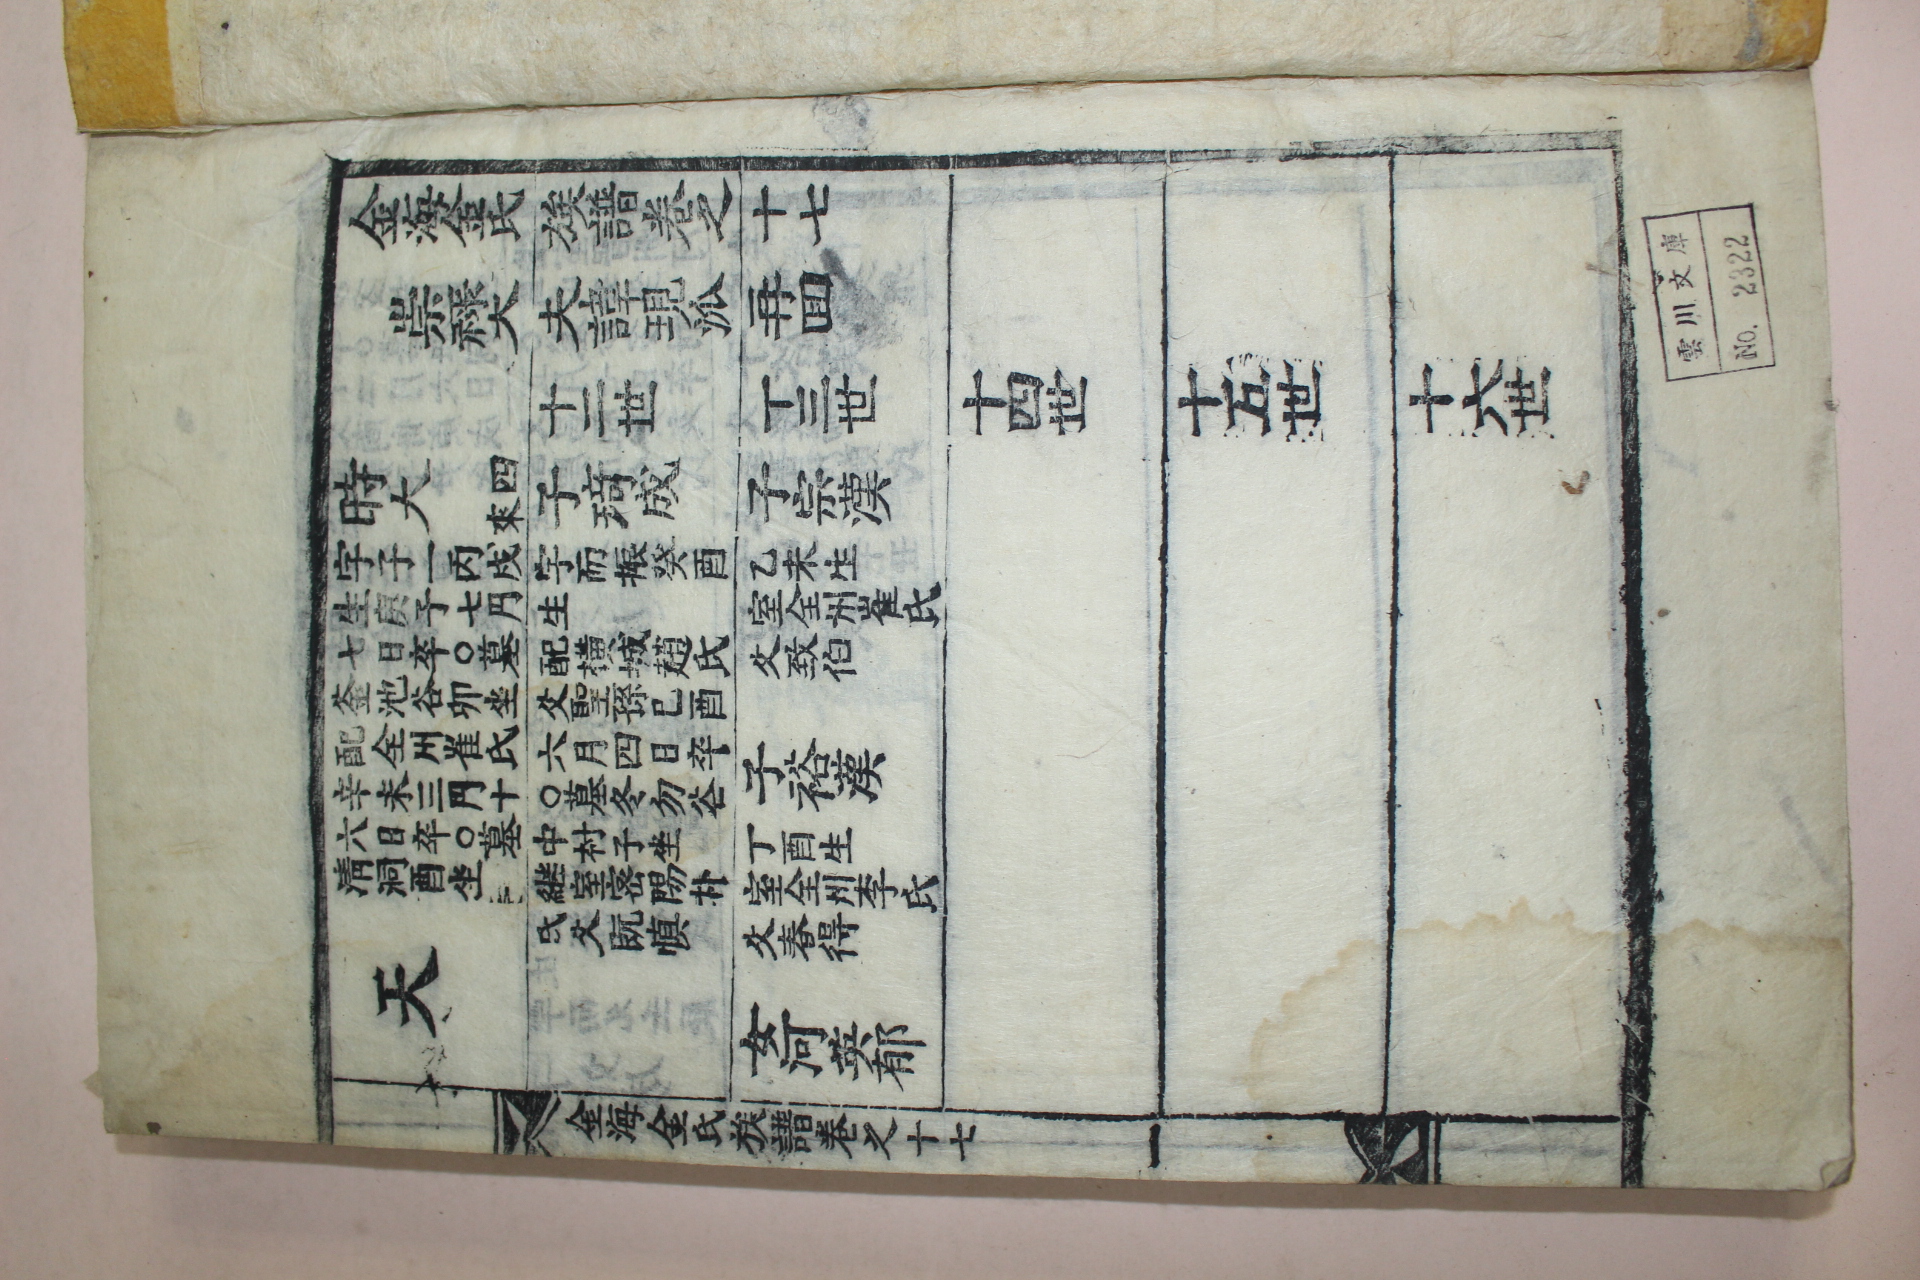 金海金氏族譜卷之十七
崇祿大夫諱現派 再四
十二世
十三世
十四世
十五世
十六世
時大
四來
字子一丙戌
生庚子七円
七日卒○墓
釜池谷卯坐
配全州崔氏
辛未三円十
六日卒○墓
清洞酉坐
天
子琦成
字而振癸酉
生
配橫城趙氏
父聖孫己酉
六月四日卒
○墓冬勿谷
中村子坐
継室密陽朴
氏父既慎
子宗漢
乙未生
室全州崔氏
父致伯
子裕漢
丁酉生
室全州李氏
父春得
女河英郁
金海金氏族譜卷之十七
一
雲川文庫
No. 2322